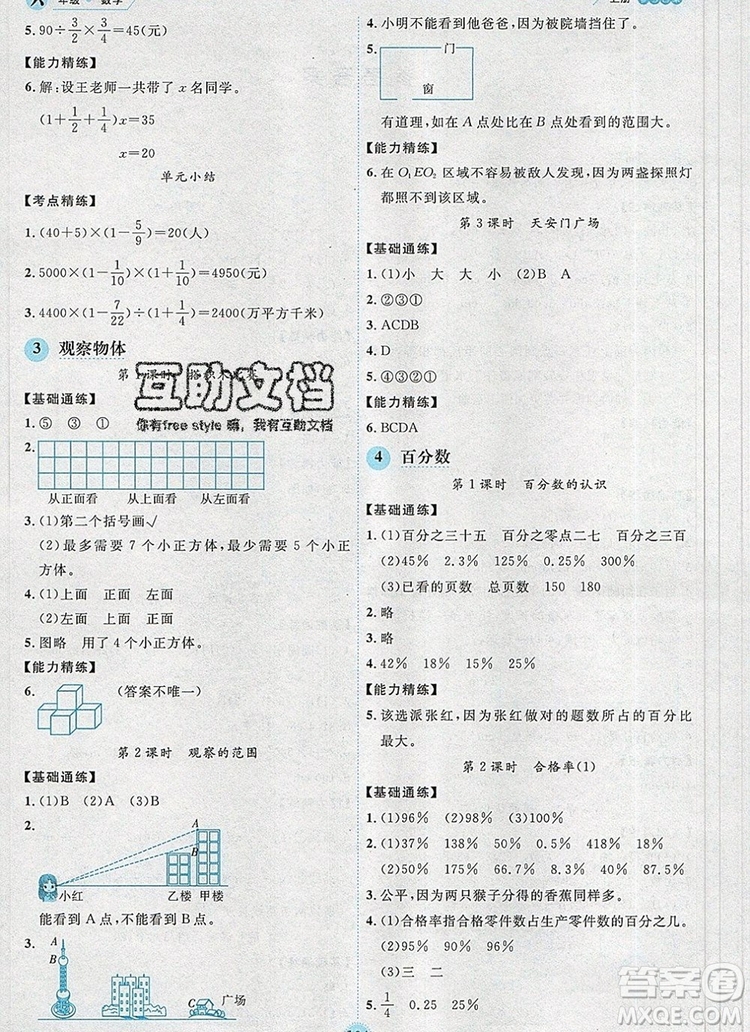 年级 数学
5. 90÷3/2×3/4=45(元)
【能力精练】
6. 解:设王老师一共带了 x 名同学。
(1+1/2+1/4)x=35
x=20
单元小结
【考点精练】
1. (40+5)×(1-5/9)=20(人)
2. 5000×(1-1/10)×(1+1/10)=4950(元)
3. 4400×(1-7/22)÷(1+1/4)=2400(万平方千米)
3 观察物体
【基础通练】
1. ⑤ ③ ①
2.
从正面看 从上面看 从左面看
3. (1)第二个括号画√
(2)最多需要 7 个小正方体,最少需要 5 个小正方体。
4. (1)上面 正面 左面
(2)左面 上面 正面
5. 图略 用了 4 个小正方体。
【能力精练】
6. (答案不唯一)
第 2 课时 观察的范围
【基础通练】
1. (1)B (2)A (3)B
2.
A
B
小红 乙楼 甲楼
能看到 A 点,不能看到 B 点。
3. A
B
广场
上册
4. 小明不能看到他爸爸,因为被院墙挡住了。
5. 门
窗
有道理,如在 A 点处比在 B 点处看到的范围大。
【能力精练】
6. 在 O₁EO₂ 区域不容易被敌人发现,因为两盏探照灯
都照不到该区域。
第 3 课时 天安门广场
【基础通练】
1. (1)小 大 大 小 (2)B A
2. ②③①
3. ACDB
4. D
5. ④②③①
【能力精练】
6. BCDA
4 百分数
第 1 课时 百分数的认识
【基础通练】
1. (1)百分之三十五 百分之零点二七 百分之三百
(2)45% 2.3% 125% 0.6% 300%
(3)已看的页数 总页数 150 180
2. 略
3. 略
4. 42% 18% 15% 25%
【能力精练】
5. 该选派张红,因为张红做对的题数所占的百分比
最大。
第 2 课时 合格率(1)
【基础通练】
1. (1)96% (2)98% (3)100%
2. (1)37% 138% 50% 0.5% 458% 4.2%
(2)50% 175% 90% 22% 40% 87.5%
3. 公平,因为两只猴子分得的香蕉同样多。
4. (1)合格率指合格零件数占生产零件数的百分之几。
(2)95% 90% 96%
(3)三 二
5. 1/4 0.25 25%
互助文档
你有free style 嘛,我有互助文档
答案圈
MXQE.COM